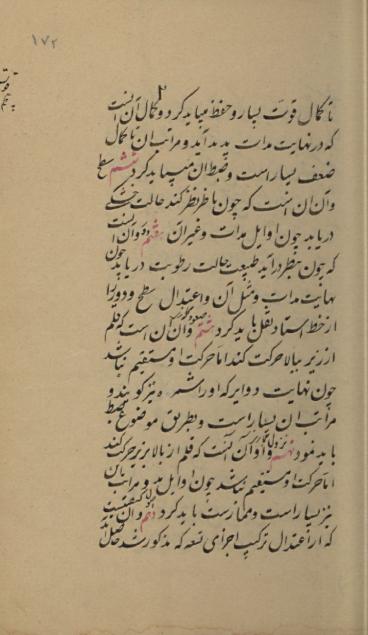 ١٧٢
تا کمال قوت بسیار و حفظ میباید کرد و کمال آن آنست
که در نهایت مدات پدید آید و مراتب آن تا کمال
ضعف بسیار است و ضبط آن میباید کرد ششم سطح
و آن آنست که چون ناظر نظر کند حالت خشکی
دریابد چون اوایل مدات و غیر آن هفتم دور و آن آنست
که چون بنظر درآید طبیعت حالت رطوبت دریابد چون
نهایت مدات و مثل آن و اعتدال سطح و دور را
از خط استاد نقل باید کرد هشتم صعود و آن آن است که قلم
از زیر ببالا حرکت کند اما حرکت او مستقیم نباشد
چون نهایت دوایر که اورا شمره نیز گویند و
مراتب آن بسیار است و بطریق موضوع ضبط
باید نمود نهم نزول و آن آنست که قلم از بالا بزیر حرکت کند
اما حرکت او مستقیم نباشد چون اوایل مد و مراتب آن
نیز بسیار است و ممارست باید کرد دهم و آن
که از اعتدال ترکیب اجزای تسعه که مذکور شد حاصل